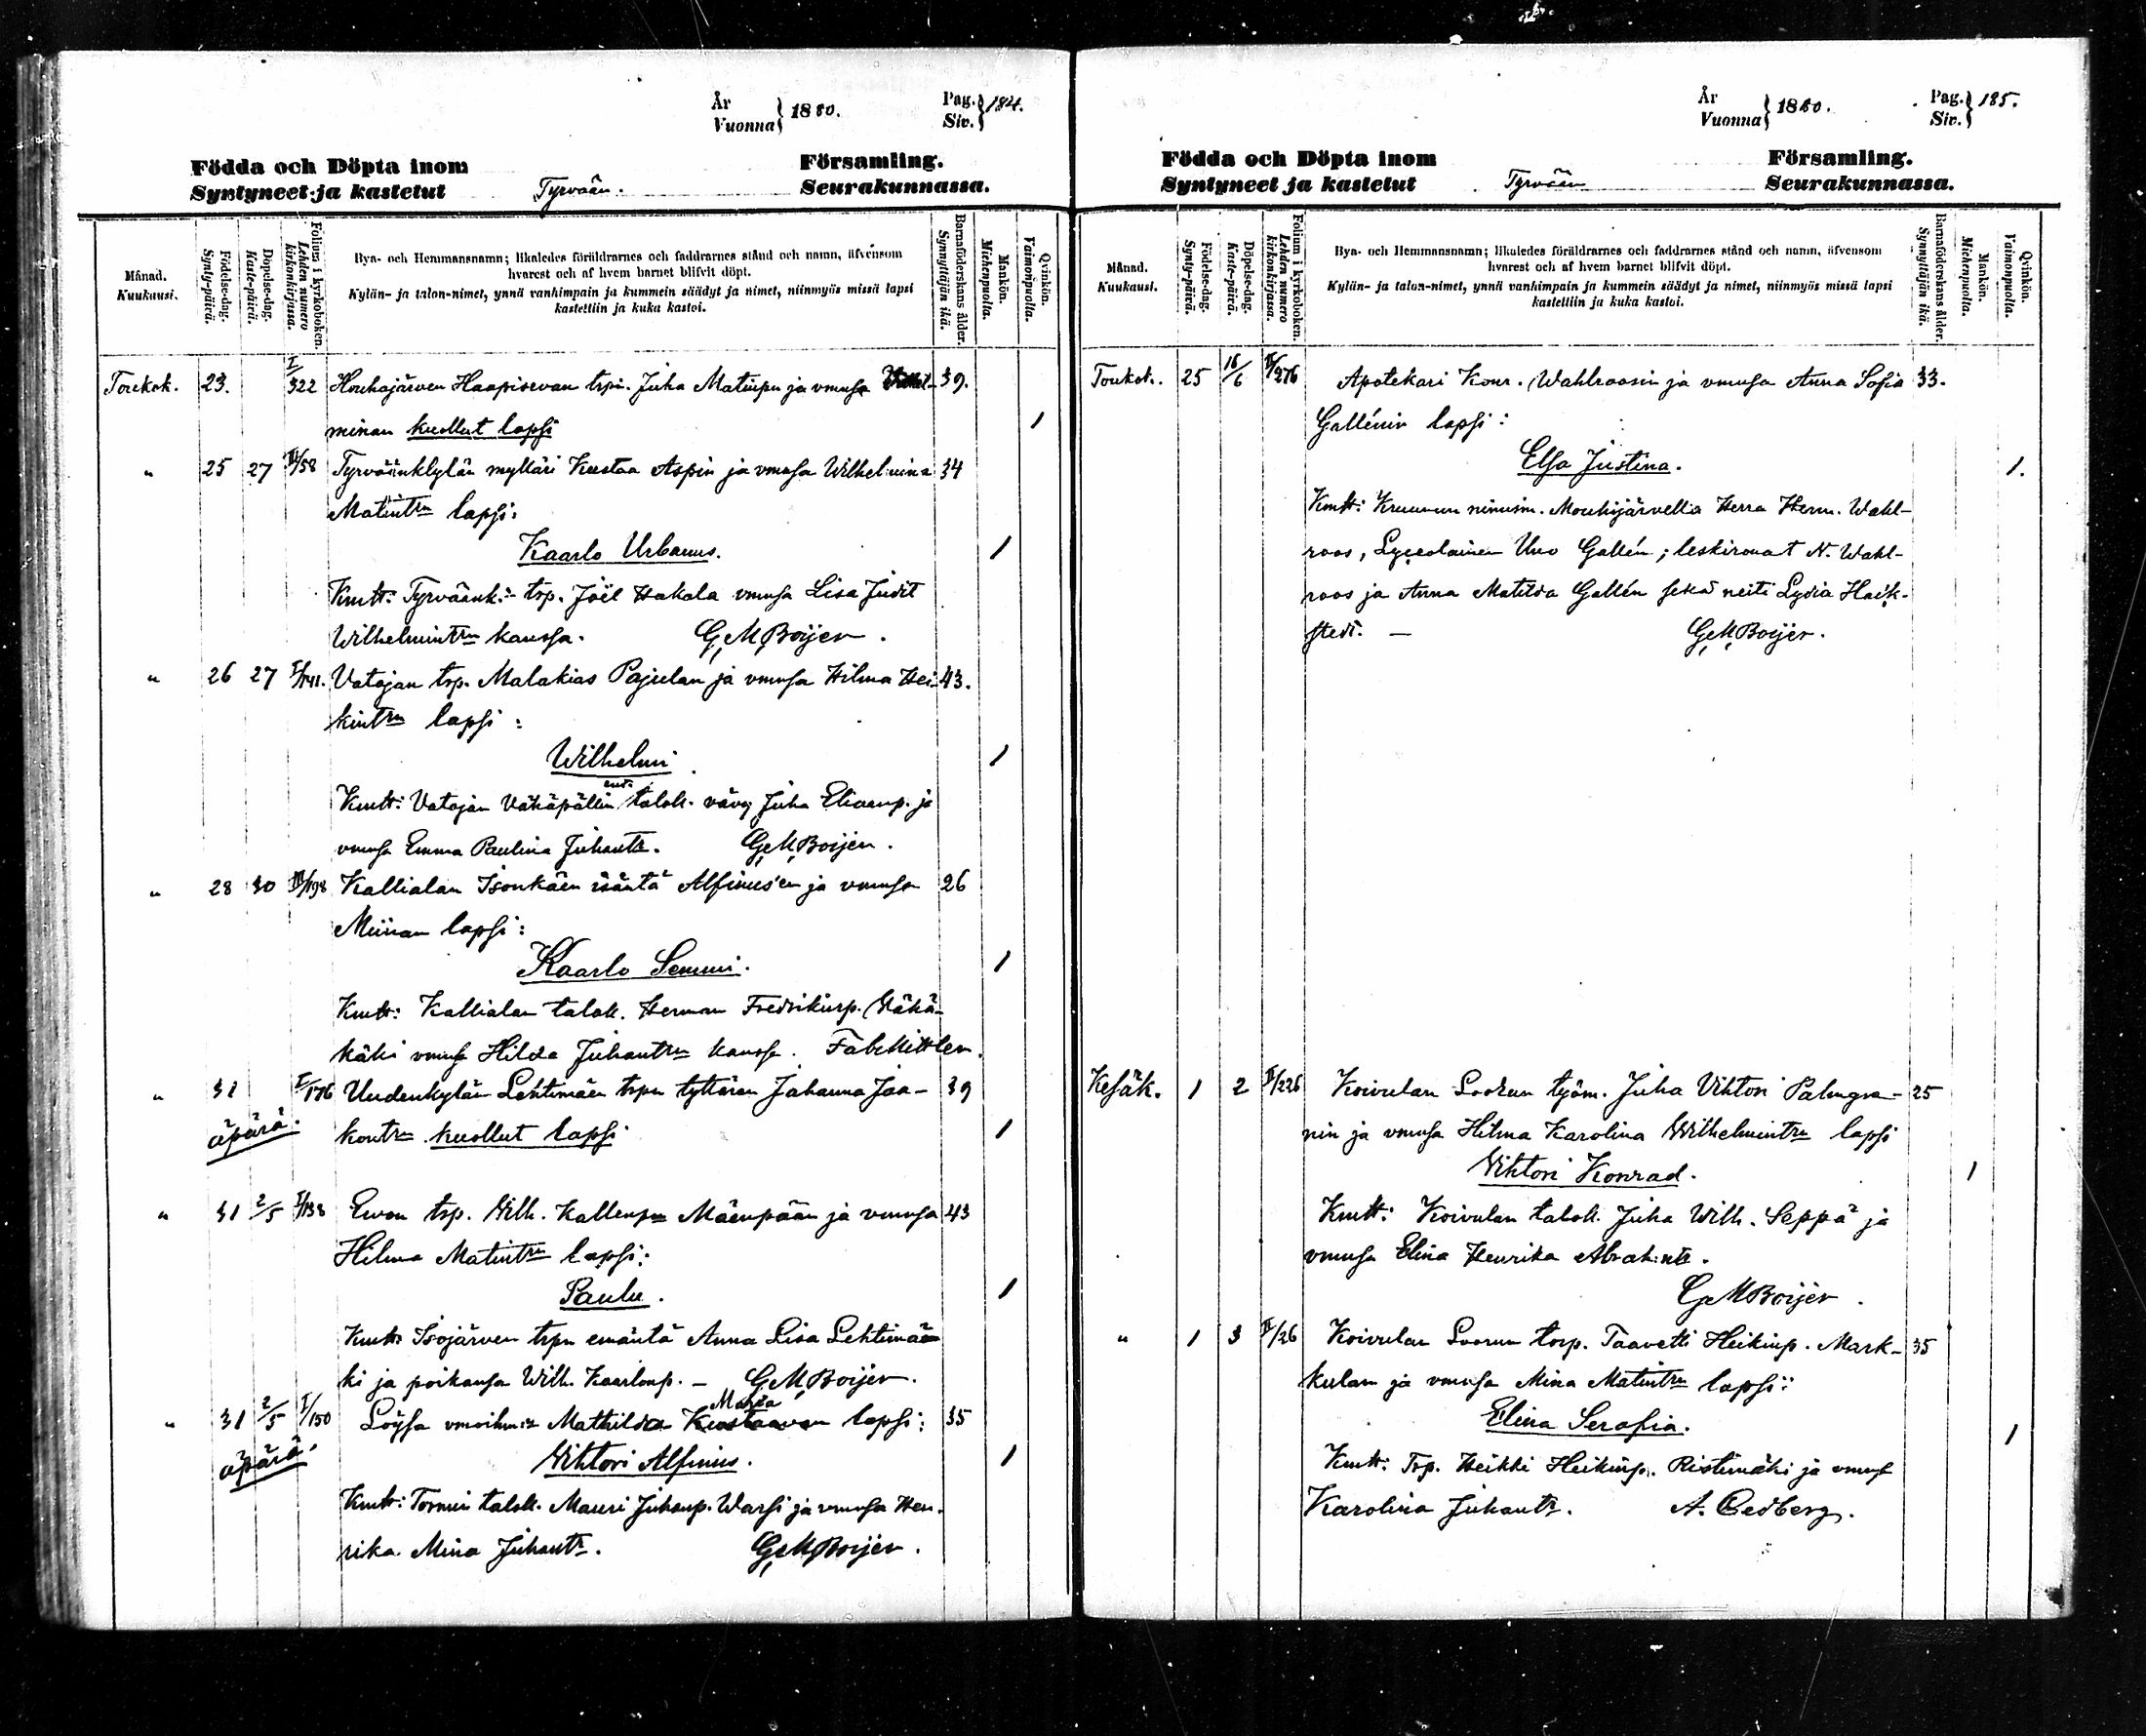 År
Vuonna } 1880.
Pag.
Siv. } 184.
Födda och Döpta inom Församling.
Syntyneet ja kastetut Tyrvään. Seurakunnassa.
Månad. Kuukausi.
Födelse-dag. Synty-päivä.
Döpelse-dag. Kaste-päivä.
Folium i kyrkoboken. Lehden numero kirkonkirjassa.
Bya- och Hemmansnamn; likaledes föräldrarnes och faddrarnes stånd och namn, äfvensom
hvarest och af hvem barnet blifvit döpt.
Kylän- ja talon-nimet, ynnä vanhimpain ja kummein säädyt ja nimet, niinmyös missä lapsi
kastettiin ja kuka kastoi.
Barnaföderskans ålder. Synnyttäjän ikä.
Mankön. Miehenpuolta.
Qvinkön. Vaimonpuolta.
Toukok. 23. I/322 Houhajärven Haapisevan trpn. Juha Matinpn ja vmnsa Vilhel- 39.
minan kuollut lapsi 1
" 25 27 II/58 Tyrväänkylän mylläri Kustaa Aspin ja vmnsa Wilhelmina 34
Matintrn lapsi:
Kaarlo Urbanus. 1
Kmtt: Tyrväänk:n trp. Joël Hakala vmnsa Lisa Judit
Wilhelmintrn kanssa. G M Boijer.
" 26 27 I/141. Vatajan trp. Malakias Pajulan ja vmnsa Hilma Hei- 43.
kintrn lapsi:
Wilhelmi 1
Kmtt: Vatajan Vähäpällin ent. talok. vävy Juha Eliaanp. ja
vmnsa Emma Paulina Juhantr. G M Boijer.
" 28 30 II/198 Kallialan Isonkäen isäntä Alfinus'en ja vmnsa 26
Miinan lapsi:
Kaarlo Semmi. 1
Kmtt: Kallialan talok. Herman Fredrikinp. Vähä-
käki vmnsa Hilda Juhantrn kanssa. Fab. Mittler.
" 31 I/176 Uudenkylän Lehtimäen trpn tyttären Johanna Jaa- 39
äpärä. kontrn kuollut lapsi 1
" 31 2/5 I/138 Ewon trp. Wilh. Kallenpn Mäenpään ja vmnsa 43
Hilma Matintrn lapsi:
Paulu. 1
Kmtt: Isojärven trpn emäntä Anna Lisa Lehtimä-
ki ja poikansa Wilh. Kaarlonp. – G M Boijer.
" 31 2/5 I/150 Löyssa vmoihm:n Mathilda Kustaavan Manda lapsi: 35
äpärä. Vihtori Alfinus. 1
Kmtt: Tornin talok. Mauri Juhanp. Warssi ja vmnsa Hen-
rika Mina Juhantr. G M Boijer.
År
Vuonna } 1880.
Pag.
Siv. } 185.
Födda och Döpta inom Församling.
Syntyneet ja kastetut Tyrvään Seurakunnassa.
Månad. Kuukausi.
Födelse-dag. Synty-päivä.
Döpelse-dag. Kaste-päivä.
Folium i kyrkoboken. Lehden numero kirkonkirjassa.
Bya- och Hemmansnamn; likaledes föräldrarnes och faddrarnes stånd och namn, äfvensom
hvarest och af hvem barnet blifvit döpt.
Kylän- ja talon-nimet, ynnä vanhimpain ja kummein säädyt ja nimet, niinmyös missä lapsi
kastettiin ja kuka kastoi.
Barnaföderskans ålder. Synnyttäjän ikä.
Mankön. Miehenpuolta.
Qvinkön. Vaimonpuolta.
Toukok. 25 16/6 II/276 Apotekari Konr. Wahlroosin ja vmnsa Anna Sofia 33.
Gallénin lapsi:
Elsa Justina. 1.
Kmtt: Kruunun nimism. Mouhijärvellä Herra Herm. Wahl-
roos, Lyceolainen Uno Gallén; leskirouvat N. Wahl-
roos ja Anna Matilda Gallén sekä neiti Lydia Heik-
stedt. – G M Boijer.
Kesäk. 1 2 II/226 Koivulan Sookun työm. Juha Vihtori Palmgre- 25
nin ja vmnsa Hilma Karolina Wilhelmintrn lapsi
Vihtori Konrad. 1
Kmtt: Koivulan talok. Juha Wilh. Seppä ja
vmnsa Elina Henrika Abrah:ntr.
G M Boijer.
" 1 3 II/26 Koivulan Suorun torp. Taavetti Heikinp. Mark- 35
kulan ja vmnsa Mina Matintrn lapsi:
Elina Serafia. 1
Kmtt: Trp. Heikki Heikinp. Ristimäki ja vmnsa
Karolina Juhantr. A. Cedberg.